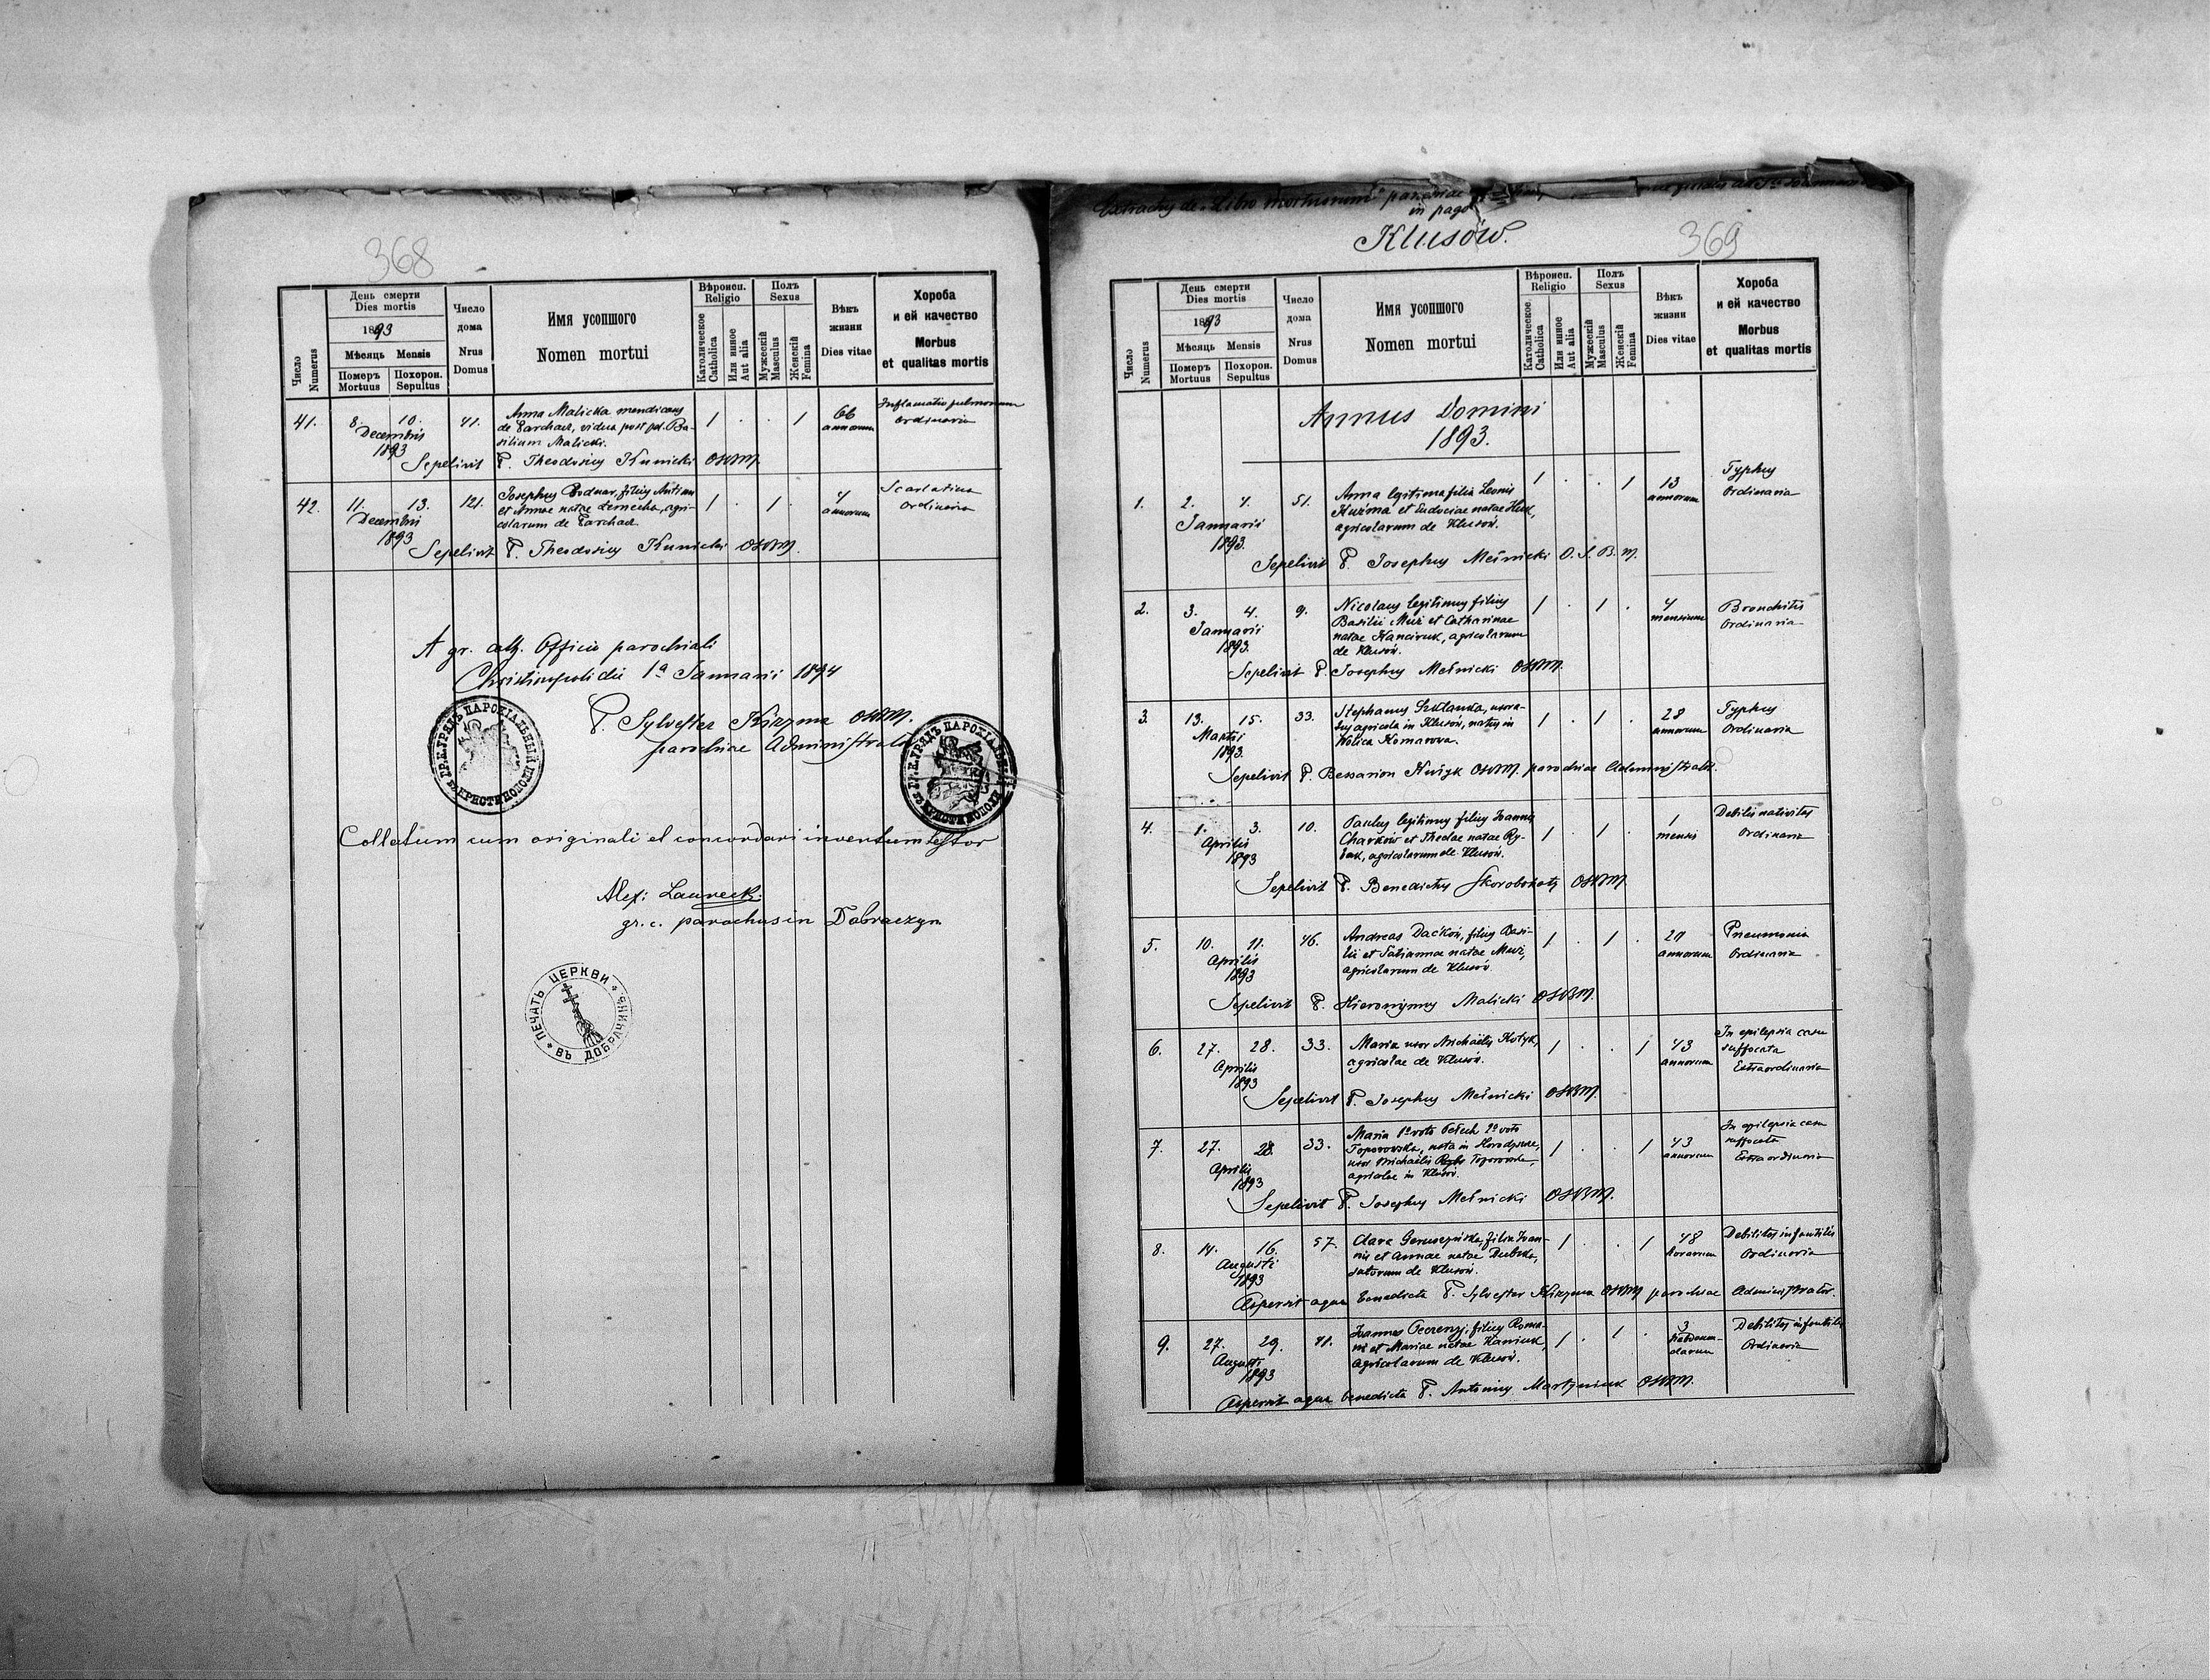 368
День смерти
Dies mortis
1893
Мѣсяць Mensis
Число
Numerus
Померъ
Mortuus
Похорон.
Sepultus
Число
дома
Nrus
Domus
Имя усопшого
Nomen mortui
Вѣроисп.
Religio
Католическое
Catholica
Или инное
Aut alia
Полъ
Sexus
Мужескій
Masculus
Женскій
Femina
Вѣкъ
жизни
Dies vitae
Хороба
и ей качество
Morbus
et qualitas mortis
41. 8. 10. 41. Anna Malicka mendicans 1 . . 1 66 Inflamatio pulmonum
Decembris de Parchacz, vidua post pd. Ba- annorum ordinaria
1893 silium Malicki.
Sepelivit P. Theodosius Kunicki OSBM.
42. 11. 13. 121. Josephus Bodnar, filius Antonii 1 . 1 . 4 Scarlatina
Decembris et Annae natae agri- annorum ordinaria
1893 colarum de Parchacz
Sepelivit P. Theodosius Kunicki OSBM.
A gr. cath. Officio parochiali
Christinopoli die 1ª Januarii 1894
P. Sylvester Kizyma OSBM.
parochiae Administrator
ГР.Е.УРЯДЪ ПАРОХІАЛЬНЫЙ ВЪ КРИСТИНОПОЛИ
ГР.Е.УРЯДЪ ПАРОХІАЛЬНЫЙ ВЪ КРИСТИНОПОЛИ
Collatum cum originali et concordari inventum testor
Alex: Laureck:
gr. c. parochus in Dobraczyn
ПЕЧАТЬ ЦЕРКВИ ВЪ ДОБРАЧИНѢ
Extractus de "Libro mortuorum" parochiae
in pago
Klusów.
369
День смерти
Dies mortis
1893
Мѣсяць Mensis
Число
Numerus
Померъ
Mortuus
Похорон.
Sepultus
Число
дома
Nrus
Domus
Имя усопшого
Nomen mortui
Вѣроисп.
Religio
Католическое
Catholica
Или инное
Aut alia
Полъ
Sexus
Мужескій
Masculus
Женскій
Femina
Вѣкъ
жизни
Dies vitae
Хороба
и ей качество
Morbus
et qualitas mortis
Annus Domini
1893.
1. 2. 4. 51. Anna legitima filia Leonis 1 . . 1 13 Typhus
Januarii Kuźma et Eudociae natae Huk, annorum ordinaria
1893. agricolarum de Klusów.
Sepelivit P. Josephus Melnicki O.S.B.M.
2. 3. 4. 9. Nicolaus legitimus filius 1 . 1 . 4 Bronchitis
Januarii Basilii Muż et Catharinae mensium ordinaria
1893. natae agricolarum
de Klusów.
Sepelivit P. Josephus Melnicki OSBM.
3. 13. 15. 33. Stephanus uxora- 1 . 1 . 28 Typhus
Martii tus agricola in Klusów, natus in annorum ordinaria
1893. Wolica Komarowa.
Sepelivit P. Bessarion OSBM. parochiae Administrator.
4. 1. 3. 10. Paulus legitimus filius Joannis 1 . 1 . 1 Debilis nativitas
Aprilis Charków et Theclae natae Ry- mensis ordinaria
1893 bak, agricolarum de Klusów.
Sepelivit P. Benedictus Skorobohaty OSBM.
5. 10. 11. 46. Andreas Daćków, filius Basi- 1 . 1 . 21 Pneumonia
Aprilis lii et Tatiannae natae Muż, annorum ordinaria
1893 agricolarum de Klusów
Sepelivit P. Hieronymus Malicki OSBM.
6. 27. 28. 33. Maria uxor Michaëlis 1 . . 1 43 In epilepsia casu
Aprilis agricolae de Klusów. annorum suffocata
1893 Extraordinaria
Sepelivit P. Josephus Melnicki OSBM.
7. 27. 28. 33. Maria 1º voto 2º voto 1 . . 1 43 In epilepsia casu
Aprilis Toporowska, nata in annorum suffocata
1893 uxor Michaëlis Toporowski, Extraordinaria
agricolae in Klusów.
Sepelivit P. Josephus Melnicki OSBM.
8. 14. 16. 57. Clara filia Joan- 1 . . 1 48 Debilitas infantilis
Augusti nis et Annae natae horarum Ordinaria
1893 de Klusów.
Aspersit aqua benedicta P. Sylvester Kizyma OSBM parochiae Administrator.
9. 27. 29. 41. Joannes filius Roma- 1 . 1 . 3 Debilitas infantilis
Augusti ni et Mariae natae Haniuk, hebdom- Ordinaria
1893 agricolarum de Klusów. darum
Aspersit aqua benedicta P. Antonius Martyniuk OSBM.